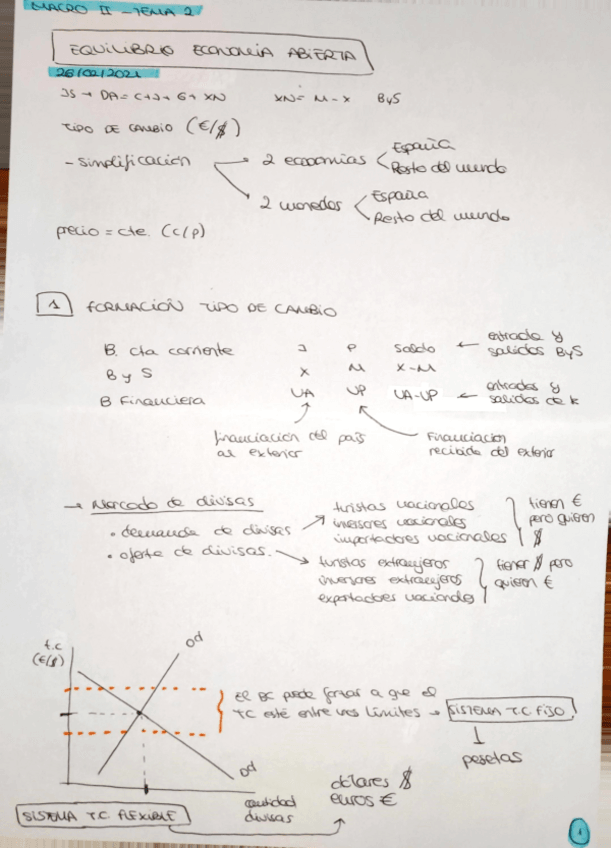 MACRO II - TEMA 2
EQUILIBRIO ECONOMÍA ABIERTA
26/02/2021
IS → DA = C+I+G+XN XN = M-X ByS
TIPO DE CAMBIO (€/$)
- Simplificación → 2 economías España
Resto del mundo
2 monedas España
Resto del mundo
precio = cte. (c/p)
1 FORMACIÓN TIPO DE CAMBIO
B. cta corriente I P Saldo ← entrada y salidas ByS
B y S X M X-M
B Financiera UA UP UA-UP ← entradas y salidas de k
financiación del país al exterior
Financiación recibida del exterior
→ Mercado de divisas
• demanda de divisas → turistas nacionales
inversores nacionales
importadores nacionales
tienen € pero quieren $
• oferta de divisas. → turistas extranjeros
inversores extranjeros
exportadores nacionales
tienen $ pero quieren €
t.c (€/$)
Od
Dd
cantidad divisas
El BC puede forzar a que el
TC esté entre unos límites → SISTEMA T.C FIJO
↓
pesetas
SISTEMA T.C. FLEXIBLE
dólares $
euros €
1